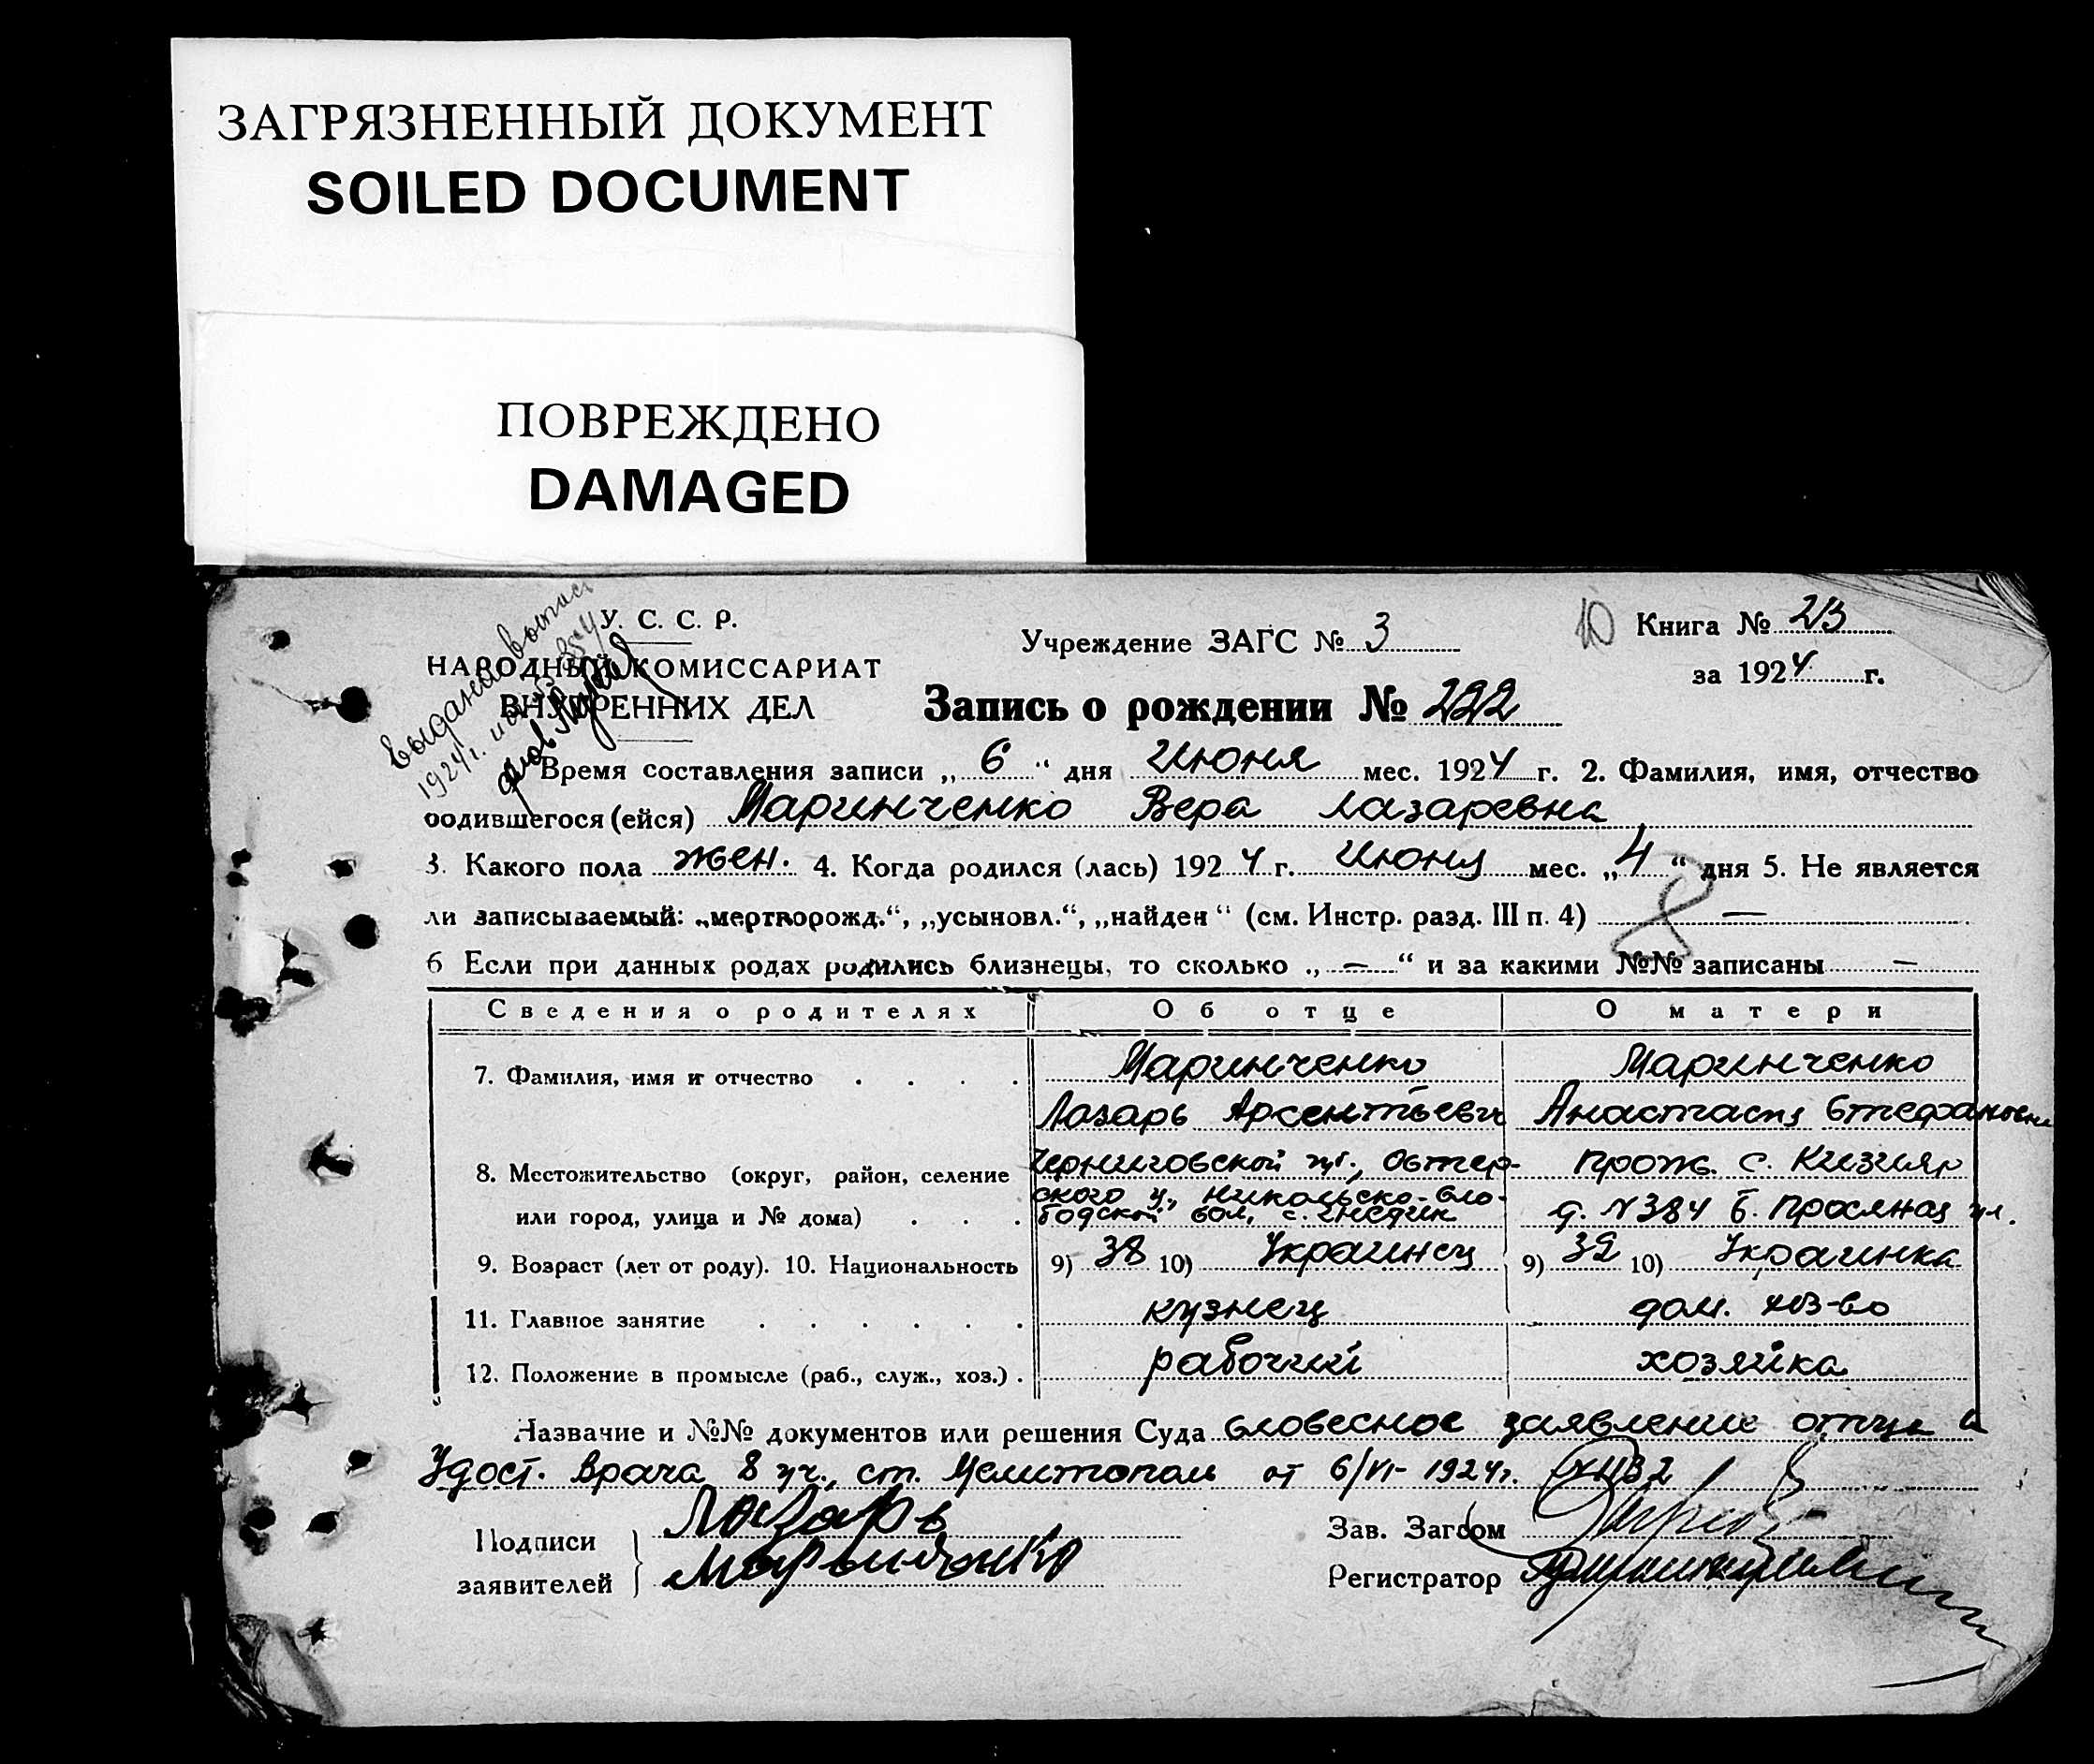 ЗАГРЯЗНЕННЫЙ ДОКУМЕНТ
SOILED DOCUMENT
ПОВРЕЖДЕНО
DAMAGED
Выдана выпись
1924 г.
У. С. С. Р.
НАРОДНЫЙ КОМИССАРИАТ
ВНУТРЕННИХ ДЕЛ
Учреждение ЗАГС № 3
10
Книга № 2/3
за 1924 г.
Запись о рождении № 222
Время составления записи „ 6 “ дня Июня мес. 1924 г. 2. Фамилия, имя, отчество
родившегося (ейся) Маринченко Вера Лазаревна
3. Какого пола жен. 4. Когда родился (лась) 1924 г. Июня мес. „4“ дня 5. Не является
ли записываемый: „мертворожд.“, „усыновл.“, „найден“ (см. Инстр. разд. III п. 4) —
6 Если при данных родах родились близнецы, то сколько „ — “ и за какими №№ записаны —
Сведения о родителях Об отце О матери
7. Фамилия, имя и отчество . . . . Маринченко Маринченко
Лазарь Арсентьевич Анастасия Стефановна
8. Местожительство (округ, район, селение Черниговской губ., Остер- прож. с. Кизияр
или город, улица и № дома) . . . ского у., Никольско-Сло-
бодской вол, с. Гнедин д. № 384 Б. Просяная ул.
9. Возраст (лет от роду). 10. Национальность 9) 38 10) Украинец 9) 32 10) Украинка
11. Главное занятие . . . . . . кузнец дом. хоз-во
12. Положение в промысле (раб., служ., хоз.) . рабочий хозяйка
Название и №№ документов или решения Суда Словесное заявление отца и
Удост. врача 8 уч., ст. Мелитополь от 6/VI- 1924г.
Подписи
заявителей
Лазарь
Марынченко
Зав. Загсом
Регистратор